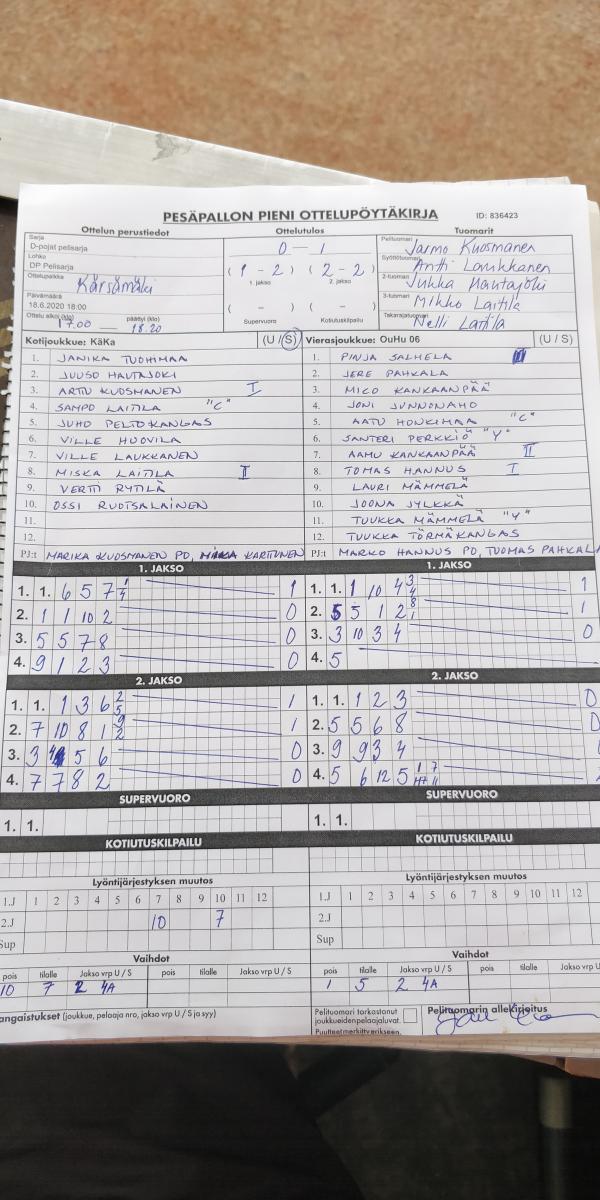 PESÄPALLON PIENI OTTELUPÖYTÄKIRJA
ID: 836423
Ottelun perustiedot
Ottelutulos
Tuomarit
Sarja
D-pojat pelisarja
Lohko
DP Pelisarja
Ottelupaikka
Kärsämäki
Päivämäärä
18.6.2020 18:00
Ottelu alkoi (klo) päättyi (klo)
17.00 — 18.20
0 — 1
( 1 - 2 ) ( 2 - 2 )
1. jakso 2. jakso
( - ) ( - )
Supervuoro Kotiutuskilpailu
Pelituomari
Jarmo Kuosmanen
Syöttötuomari
Antti Laukkanen
2-tuomari
Jukka Hautajoki
3-tuomari
Mikko Laitila
Takarajatuomari
Nelli Laitila
Kotijoukkue: KäKa (U / S)
1. JANIKA TUOHIMAA
2. JUUSO HAUTAJOKI
3. ARTU KUOSMANEN I
4. SAMPO LAITILA "C"
5. JUHO PELTOKANGAS
6. VILLE HUOVILA
7. VILLE LAUKKANEN
8. MISKA LAITILA II
9. VERTI RYTILÄ
10. OSSI RUOTSALAINEN
11.
12.
PJ:t MARIKA KUOSMANEN PD, MIKA KARTUNEN
Vierasjoukkue: OuHu 06 (U / S)
1. PINJA SALMELA
2. JERE PAHKALA
3. MICO KANKAANPÄÄ
4. JONI JUNNONAHO
5. AATU HONKIMAA "C"
6. SANTERI PERKKIÖ "Y"
7. AAMU KANKAANPÄÄ II
8. TOMAS HANNUS I
9. LAURI MÄMMELÄ
10. JOONA JYLKKÄ
11. TUUKKA MÄMMELÄ "Y"
12. TUUKKA TÖRMÄKANGAS
PJ:t MARKO HANNUS PD, TUOMAS PAHKALA
1. JAKSO
1. 1. 6 5 7 1/4 1
2. 1 1 10 2 0
3. 5 5 7 8 0
4. 9 1 2 3 0
1. JAKSO
1. 1. 1 10 4 3/4 1
2. 5 5 1 2 8/1 1
3. 3 10 3 4 0
4. 5
2. JAKSO
1. 1. 1 3 6 2/5 1
2. 7 10 8 1 9/2 1
3. 3 4 5 6 0
4. 7 7 8 2 0
2. JAKSO
1. 1. 1 2 3 0
2. 5 5 6 8 0
3. 9 9 3 4
4. 5 6 12 5
SUPERVUORO
1. 1.
SUPERVUORO
1. 1.
KOTIUTUSKILPAILU
KOTIUTUSKILPAILU
Lyöntijärjestyksen muutos
1.J 1 2 3 4 5 6 7 8 9 10 11 12
2.J 10 7
Sup
Lyöntijärjestyksen muutos
1.J 1 2 3 4 5 6 7 8 9 10 11 12
2.J
Sup
Vaihdot
pois tilalle Jakso vrp U / S pois tilalle Jakso vrp U / S
10 7 2 4A
Vaihdot
pois tilalle Jakso vrp U / S pois tilalle Jakso vrp U
1 5 2 4A
angaistukset (joukkue, pelaaja nro, jakso vrp U / S ja syy)
Pelituomari tarkastanut
joukkueidenpelaajaluvat.
Puutteetmerkittverikseen.
Pelituomarin allekirjoitus